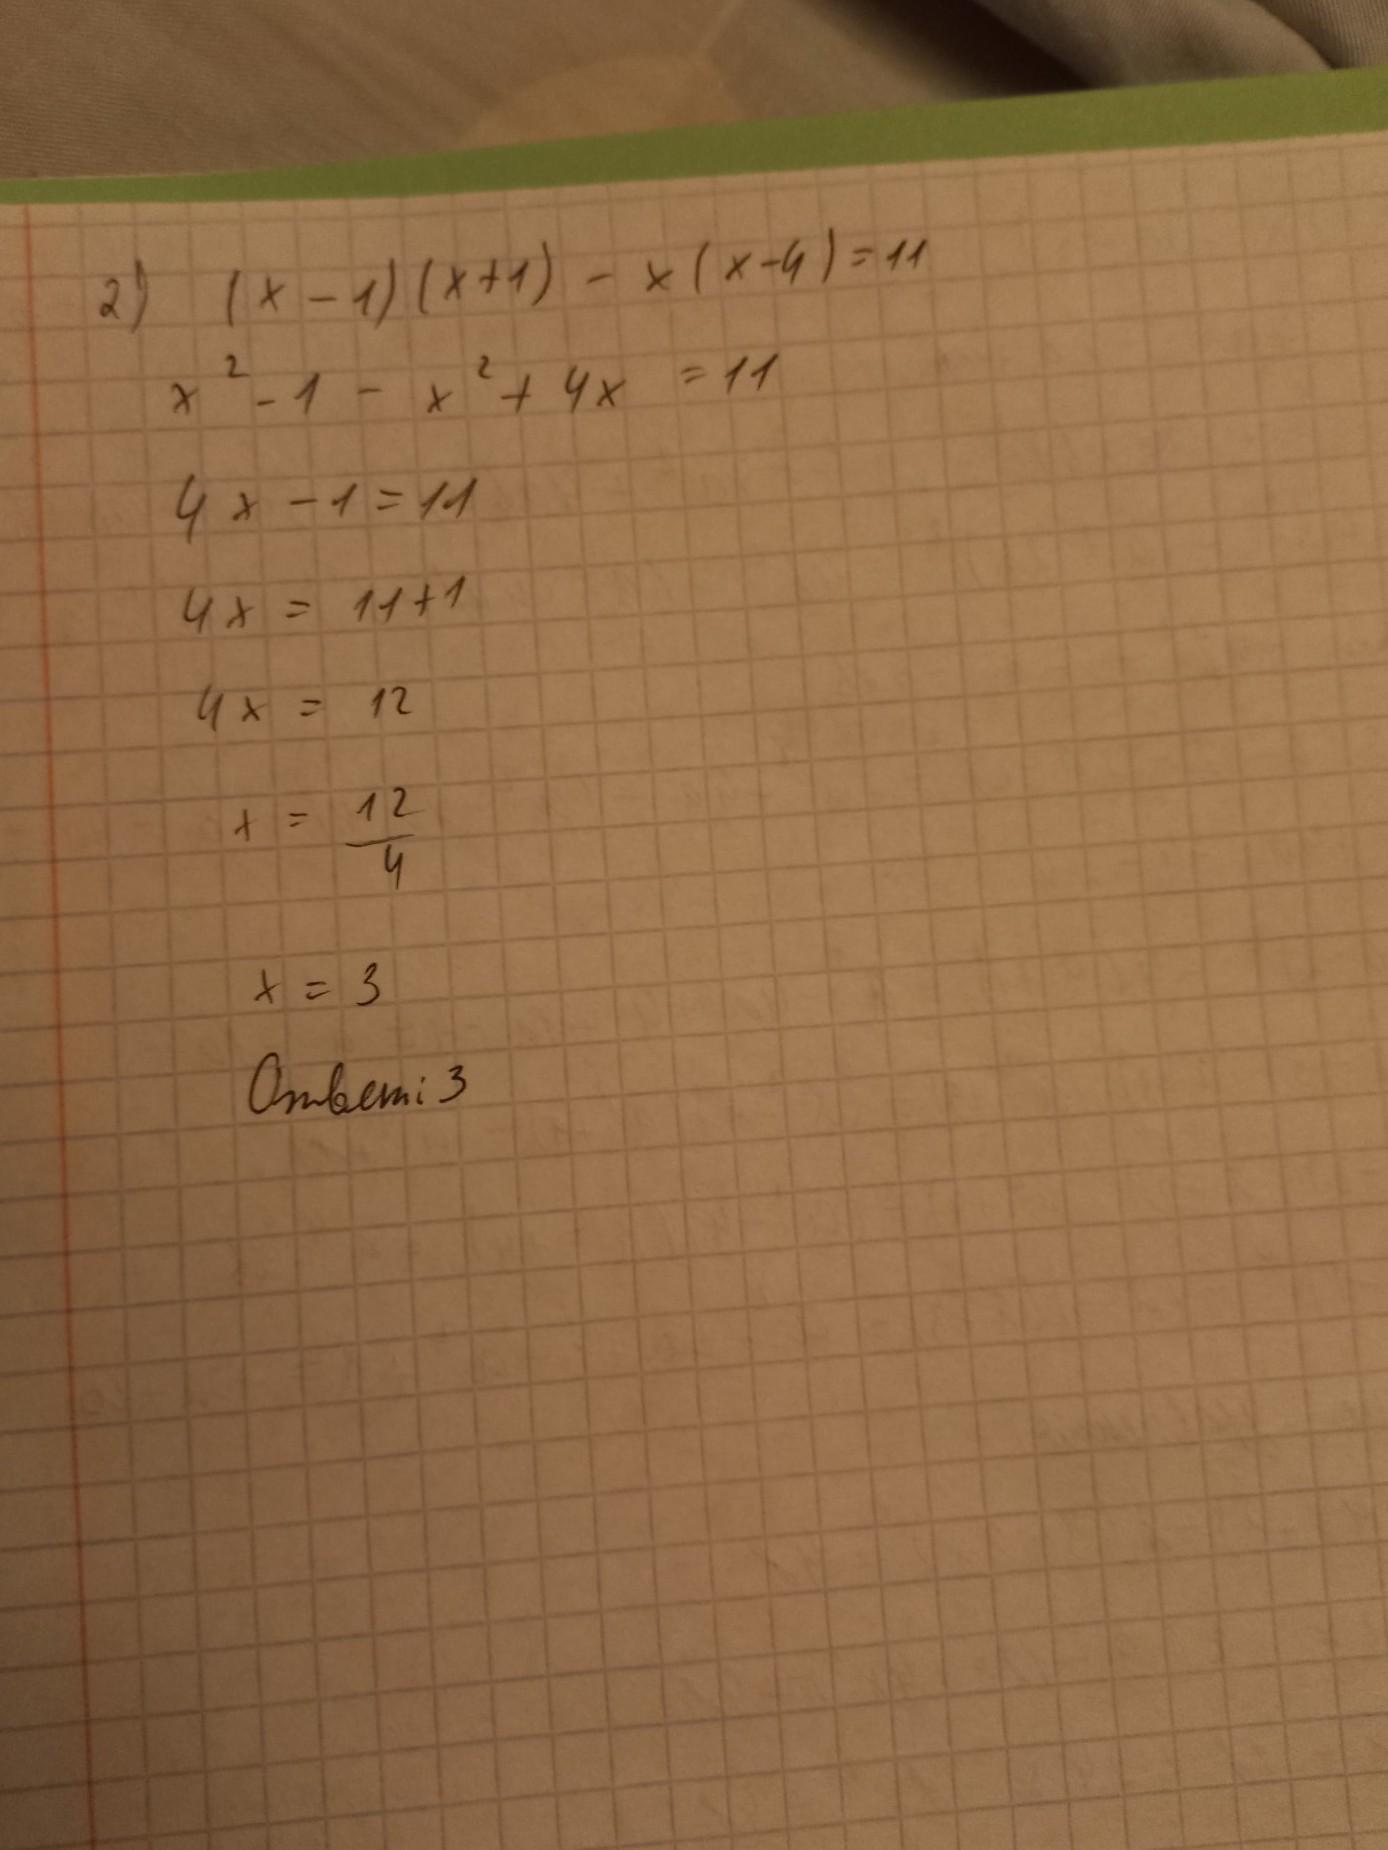 2) (x - 1)(x+1) - x(x-4)=11
x² - 1 - x² + 4x = 11
4x - 1 = 11
4x = 11+1
4x = 12
x = 12/4
x = 3
Ответ: 3